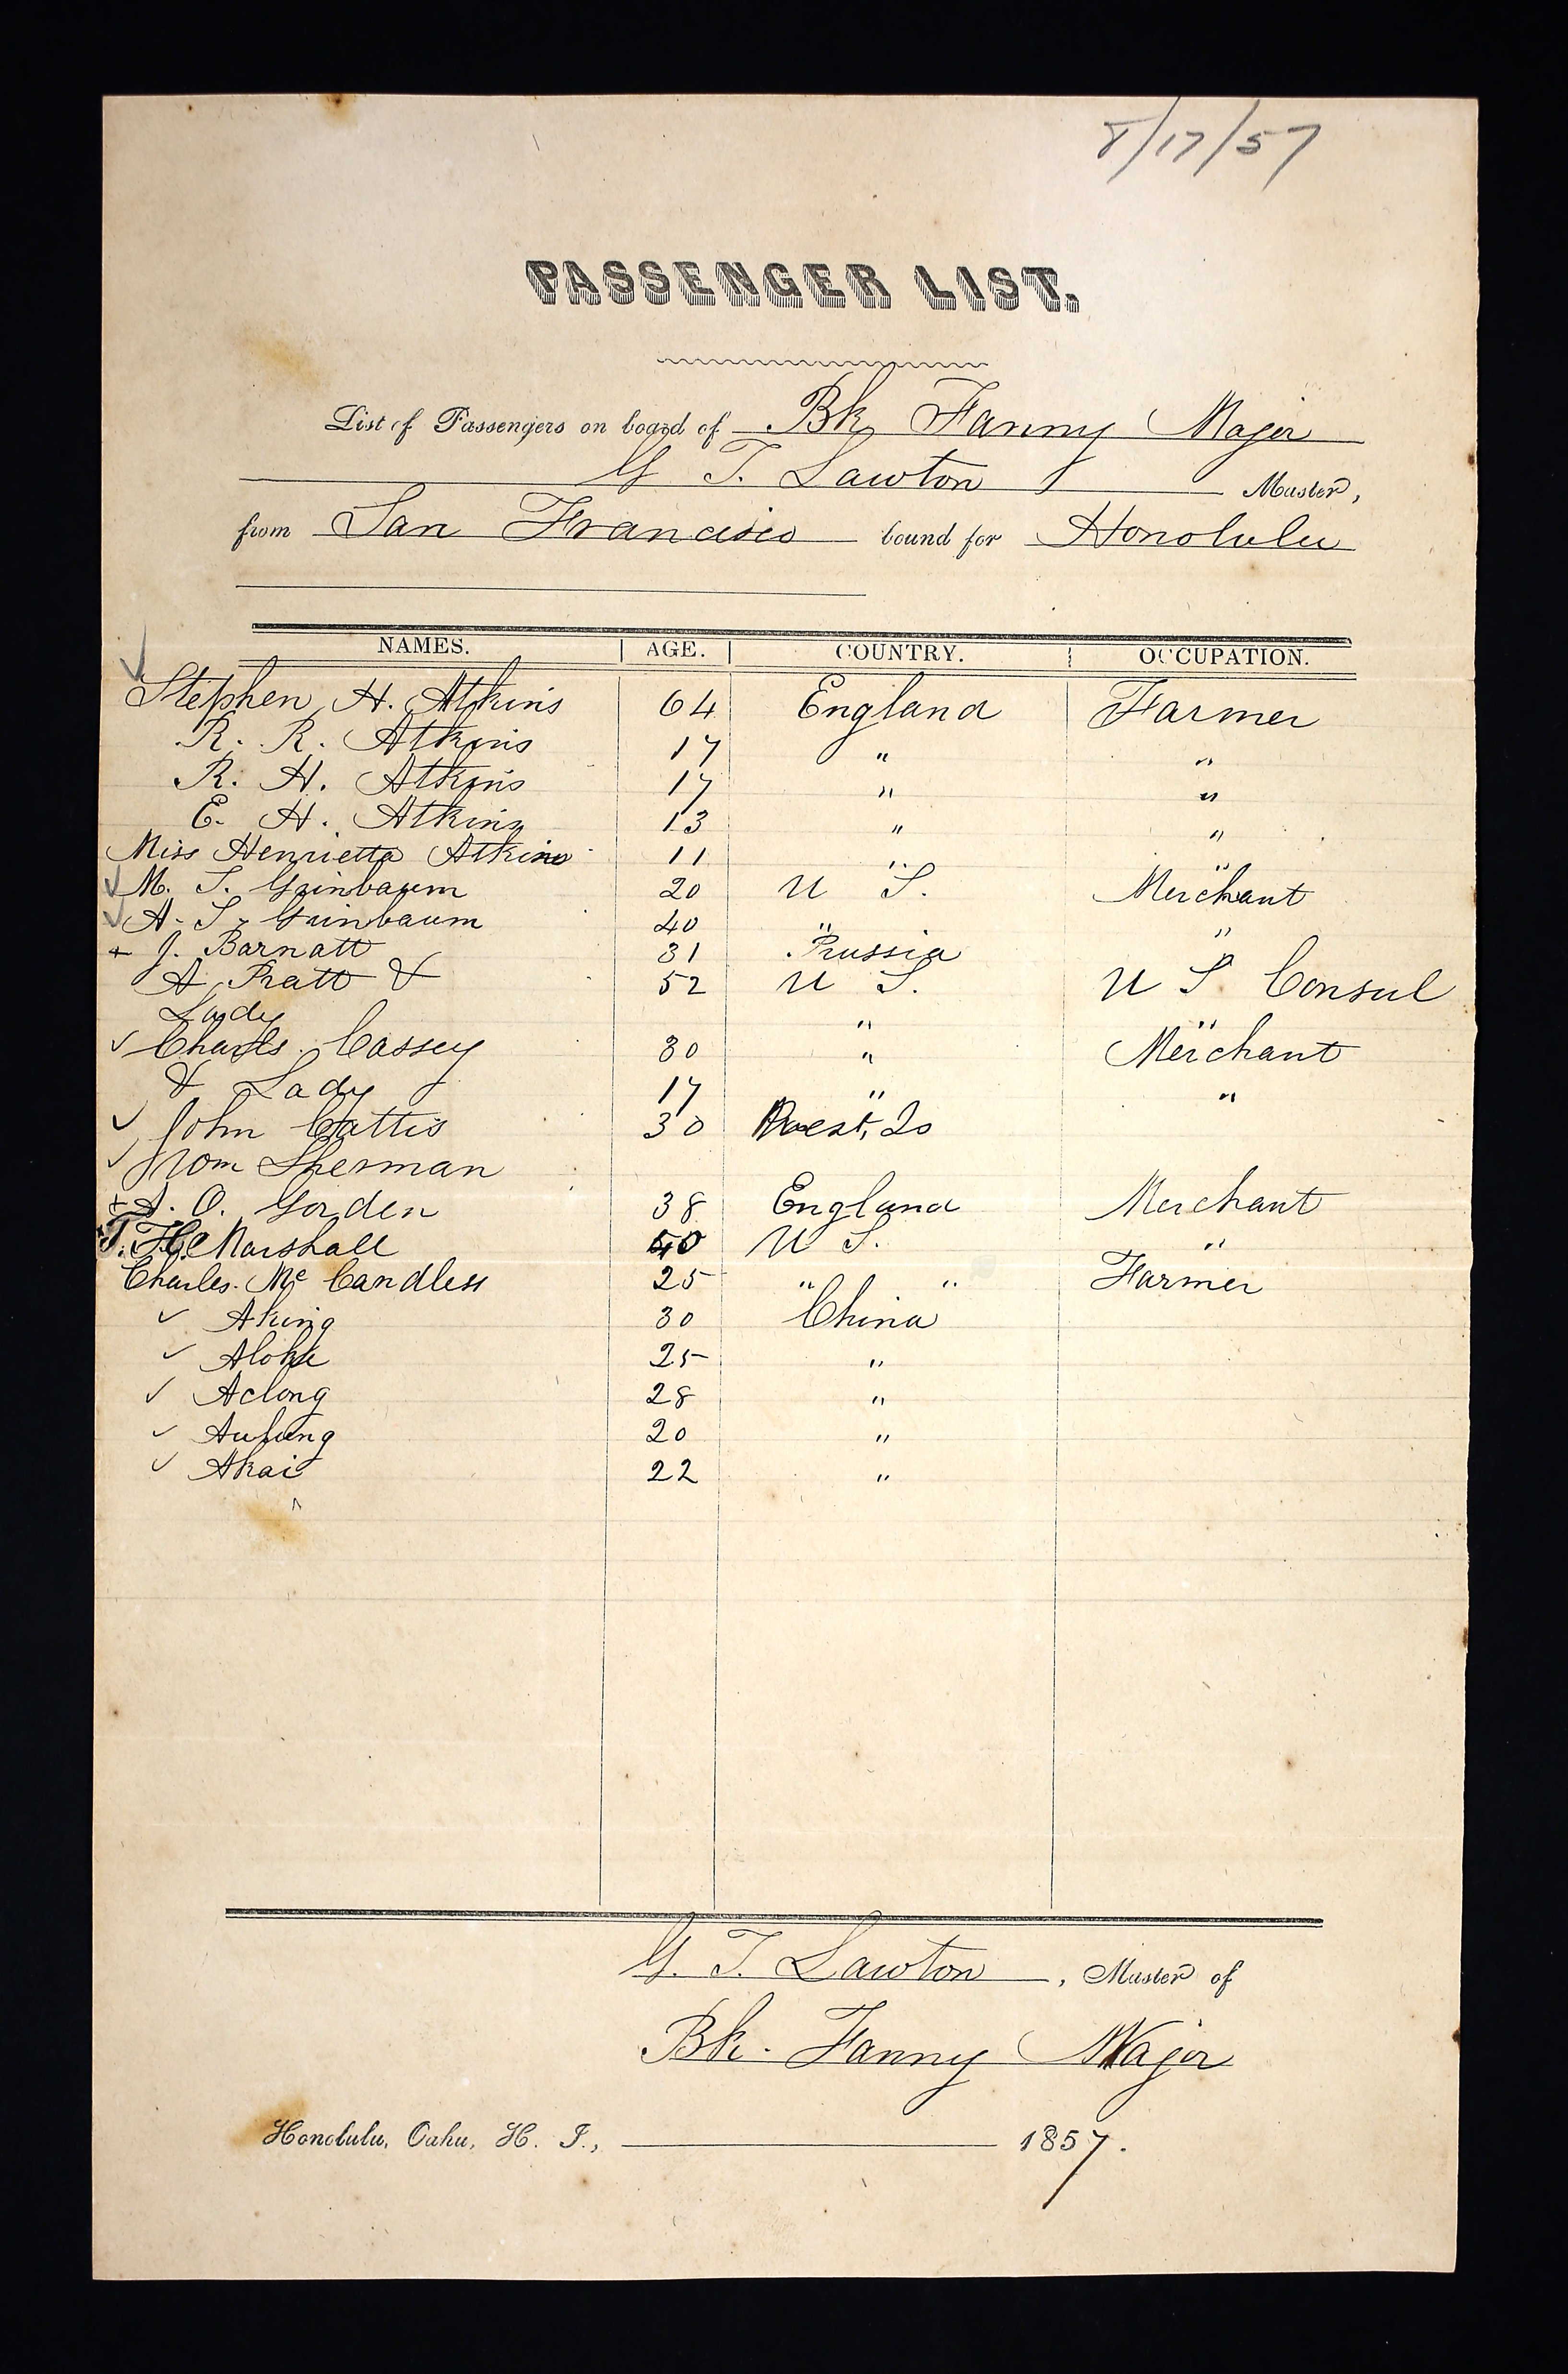 8/17/57
PASSENGER LIST.
List of Passengers on board of Bk Fanny Major
G T. Lawton Master,
from San Francisco bound for Honolulu
NAMES. AGE. COUNTRY. OCCUPATION.
Stephen H. Atkins 64 England Farmer
R. R. Atkins 17 " "
R. H. Atkins 17 " "
E. H. Atkins 13 " "
Miss Henrietta Atkins 11 " "
M. S. Grinbaum 20 U S. Merchant
A. S. Grinbaum 40 " "
J. Barnatt 31 Prussia "
A Pratt & 52 U S. U S Consul
Lady " "
Charls Cassey 30 " Merchant
& Lady 17 " "
John Cattis 30 Do
Wom Sherman
O. Gorden 38 England Merchant
T. H. Marshall U S. "
Charles Mc Candless 25 " " Farmer
Aking 30 China
Aloke 25 "
Aclong 28 "
20 "
Akai 22 "
G. T. Lawton, Master of
Bk. Fanny Major
Honolulu, Oahu, H. I., 1857.